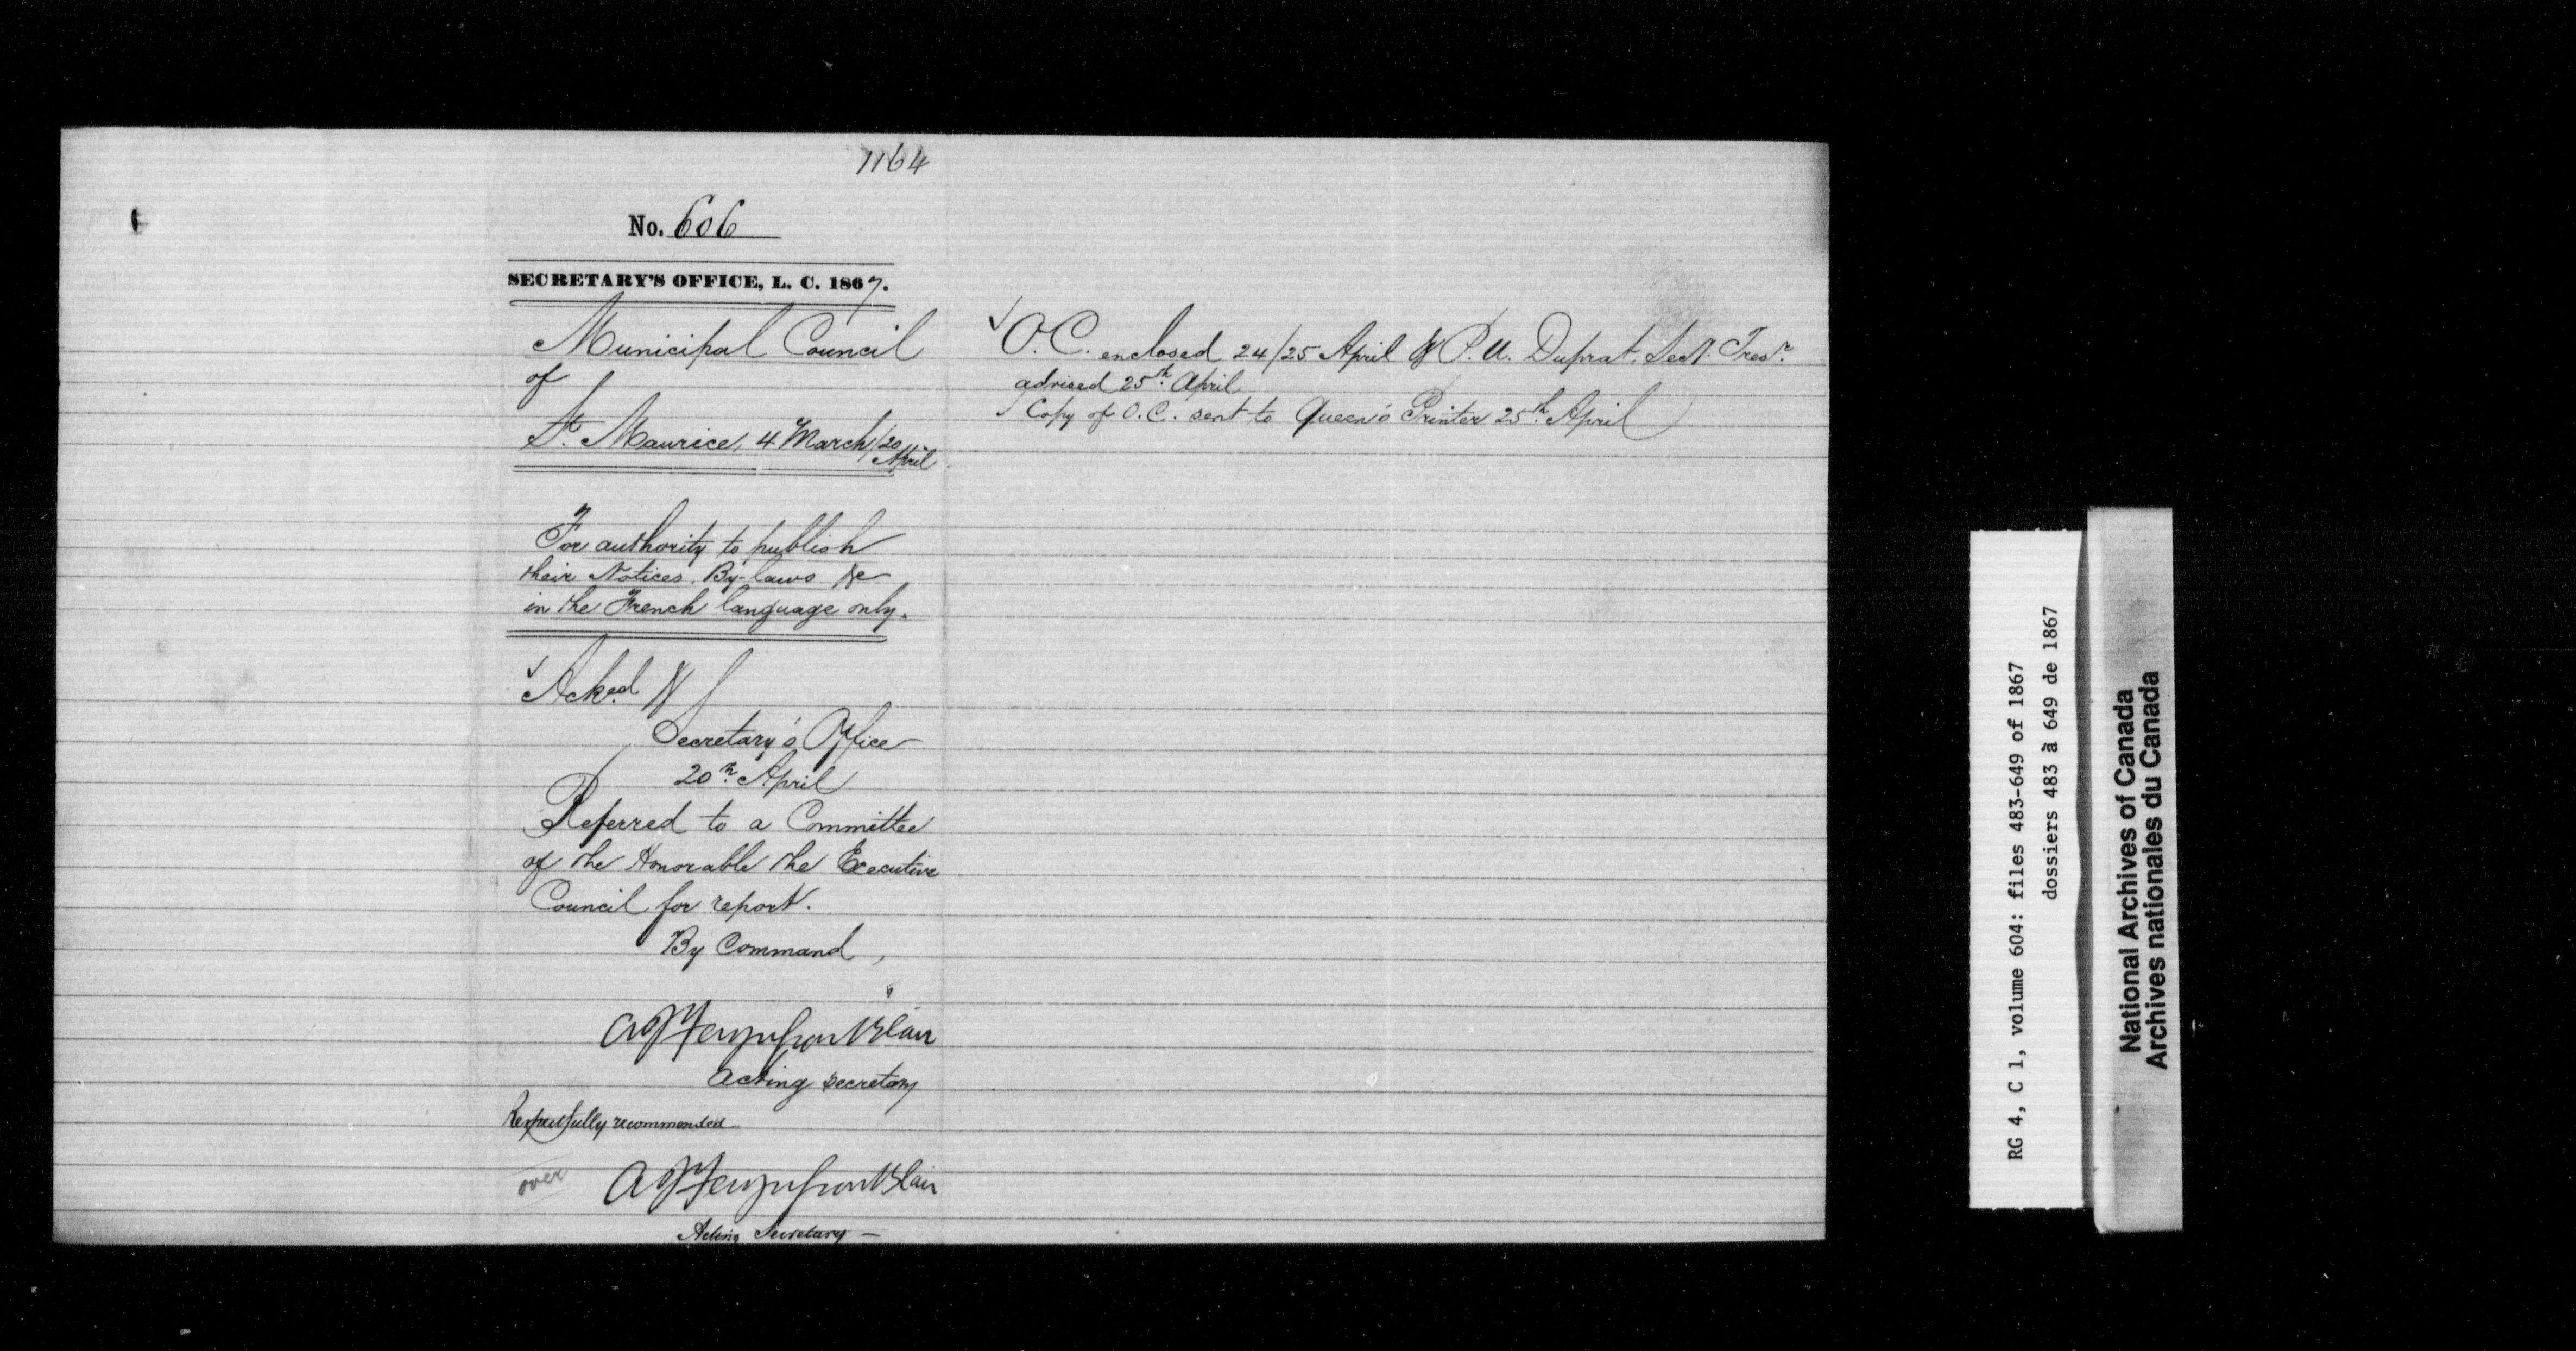 1164
No. 606
SECRETARY'S OFFICE, L. C. 1867.
Municipal Council
of
St. Maurice, 4 March/20
April
For authority to publish
their Notices. By-laws &c
in the French language only.
Acked.
Secretary's Office
20th. April
Referred to a Committee
of the Honorable the Executive
Council for report.
By Command,
A J Fergusson Blair
Acting Secretary
Respectfully recommended
A J Fergusson Blair
Acting Secretary —
over
O. C. enclosed 24/25 April & P. U. Duprat. Sec. Tresr.
advised 25th. April
Copy of O. C. sent to Queen's Printer 25th. April
RG 4, C 1, volume 604: files 483-649 of 1867
dossiers 483 à 649 de 1867
National Archives of Canada
Archives nationales du Canada